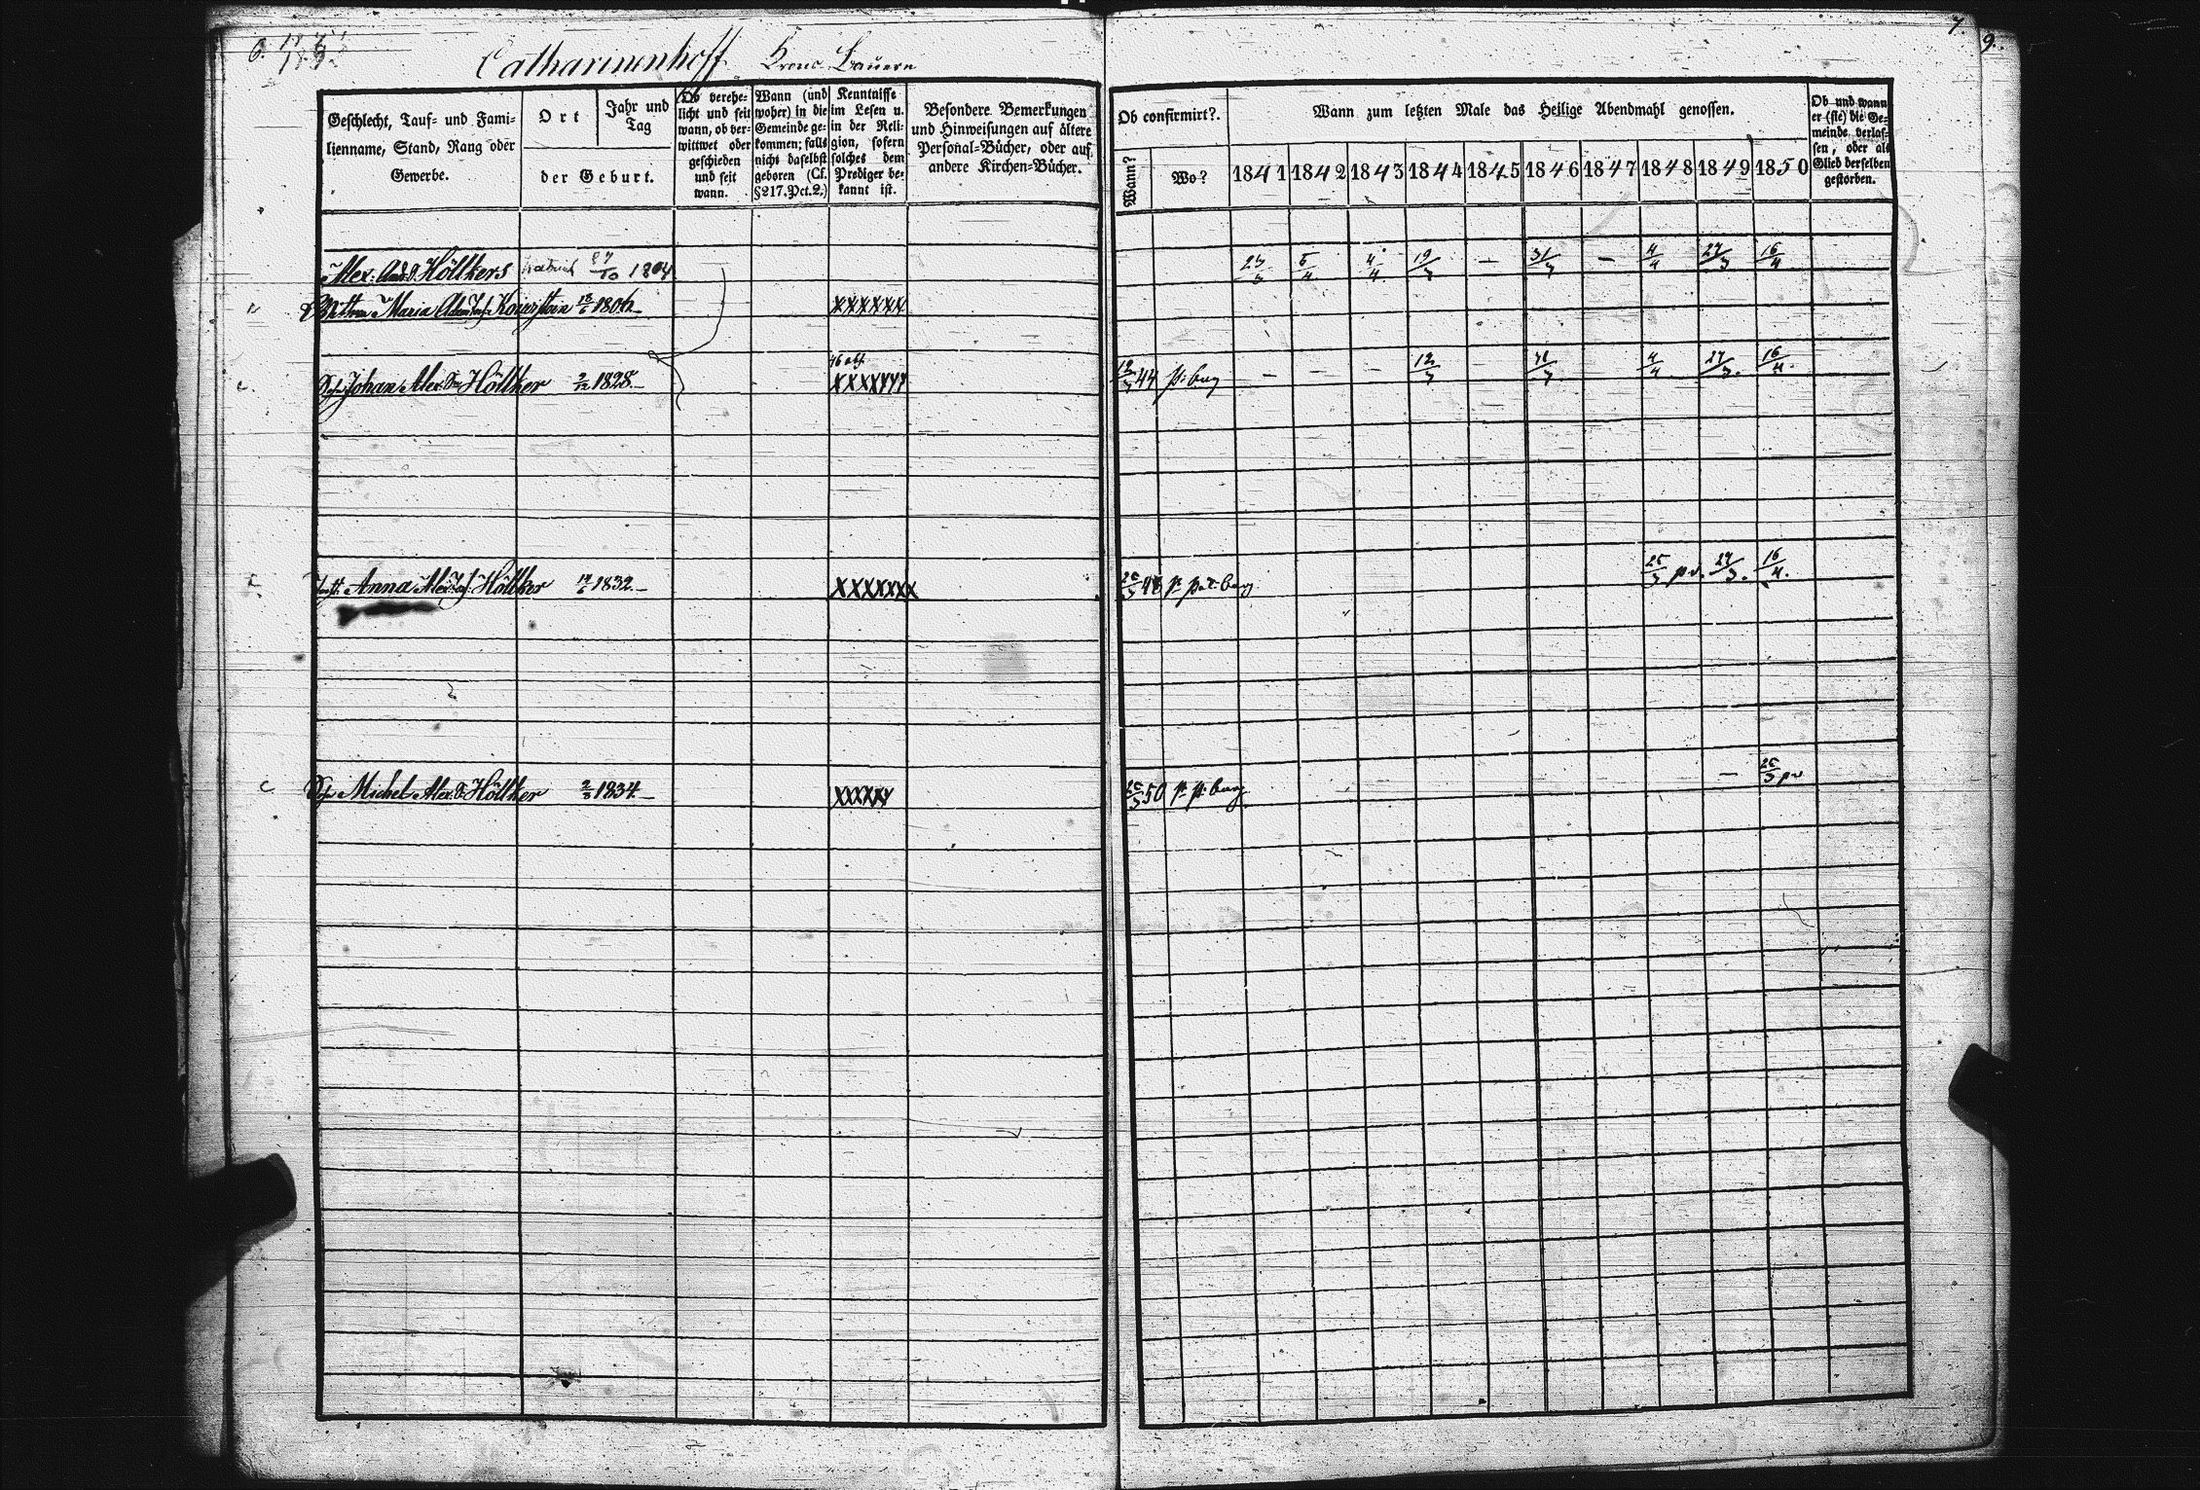 6.
7.
9.
Catharinenhoff Krons-Bauern
Geschlecht, Tauf- und Fami-
lienname, Stand, Rang oder
Gewerbe.
Ort
Jahr und
Tag
der Geburt.
Ob verehe-
licht und seit
wann, ob ver-
wittwet oder
geschieden
und seit
wann.
Wann (und
woher) in die
Gemeinde ge-
kommen; falls
nicht daselbst
geboren (Cf.
§217.Pct.2.)
Kenntnisse
im Lesen u.
in der Reli-
gion, sofern
solches dem
Prediger be-
kannt ist.
Besondere Bemerkungen
und Hinweisungen auf ältere
Personal-Bücher, oder auf
andere Kirchen-Bücher.
Ob confirmirt?.
Wann?
Wo?
Wann zum letzten Male das Heilige Abendmahl genossen.
1841 1842 1843 1844 1845 1846 1847 1848 1849 1850
Ob und wann
er (sie) die Ge-
meinde verlas-
sen, oder als
Glied derselben
gestorben.
Alex: And. S. Höltkers 1804 23/3 5/4 4/4 19/3 — 31/3 — 4/4 27/3 16/4
Maria 18/6 1806 xxxxxx
Johan Alex. Höltker 2/12 1828. xxxxxxx 12/3 44 — — — 12/3 — 31/3 4/4 27/3. 16/4.
Anna Alex. Höltker 17/6 1832. xxxxxxx 25/3 48 25/3 pr. 27/3. 16/4.
Michel Alex. S. Höltker 2/3 1834. xxxxxx 25/3 50 — 25/3 pr